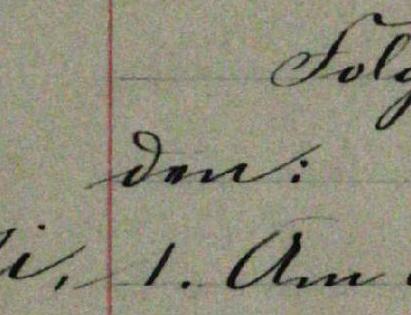 Folg
den:
i, 1. Am